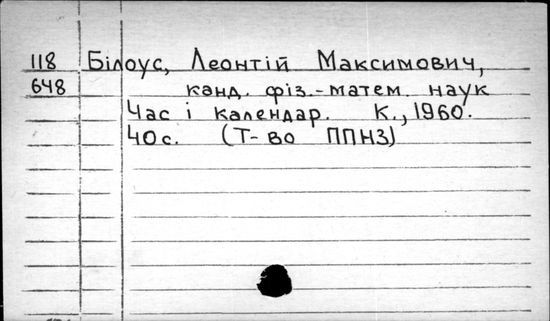 118 Білоус, Леонтій Максимович,
648 канд. фіз.-матем. наук
Час і календар. К., 1960.
40с. (Т-во ППНЗ)